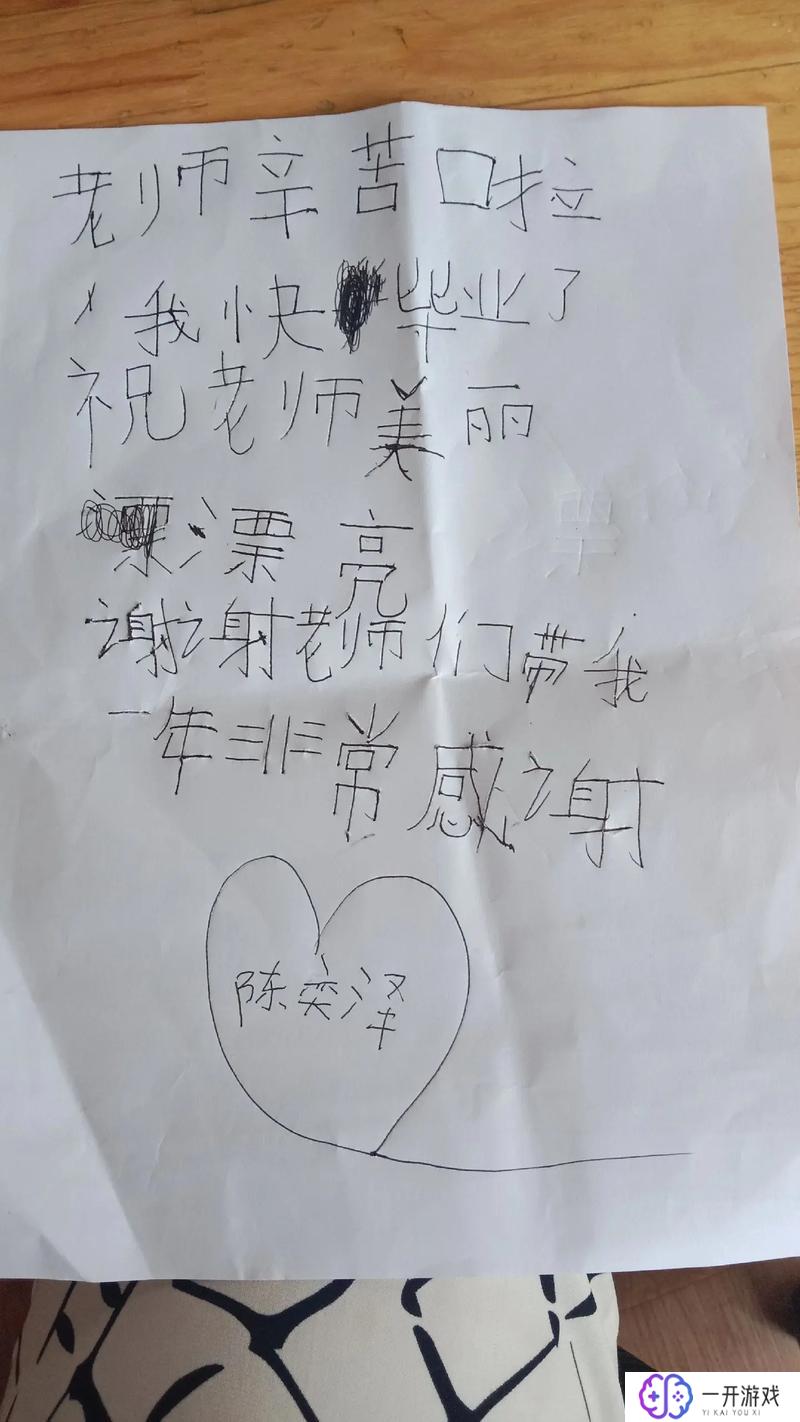 老师辛苦啦
，我快毕业了
祝老师美丽
漂亮
谢谢老师们带我
一年非常感谢
陈奕泽
一开游戏
YI KAI YOU XI